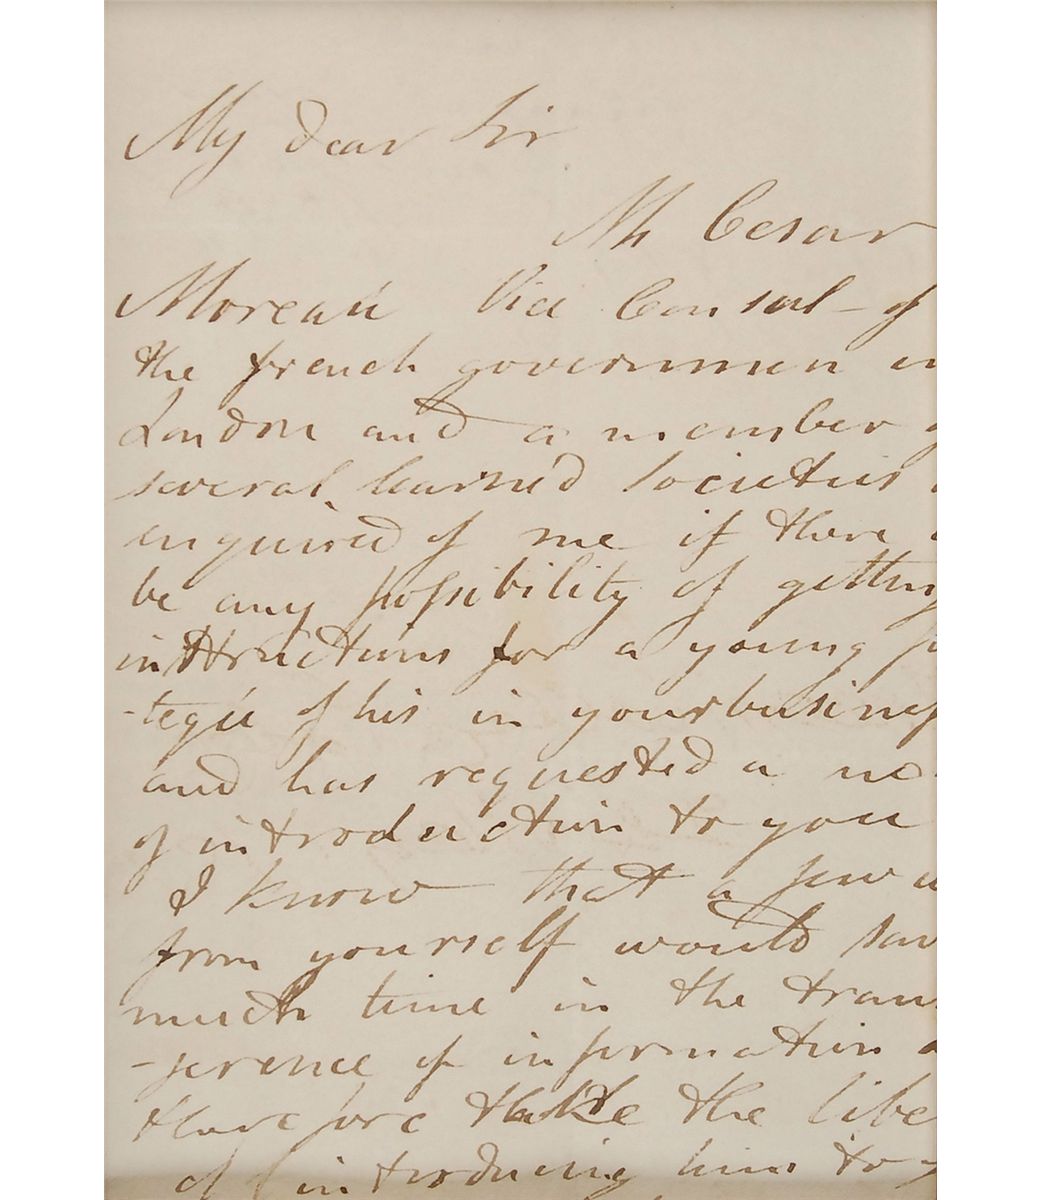 My dear Sir
Mr Cesar
Moreau Vice Consul - of
the french governmen in
London and a member
several learned Societies
enquired of me if there
be any possibility of getting
instructions for a young
-tegée of his in your business
and has requested a
of introduction to you
I know that a few
from yourself would
much time in the
-ference of information
therefore take the
of introducing him to